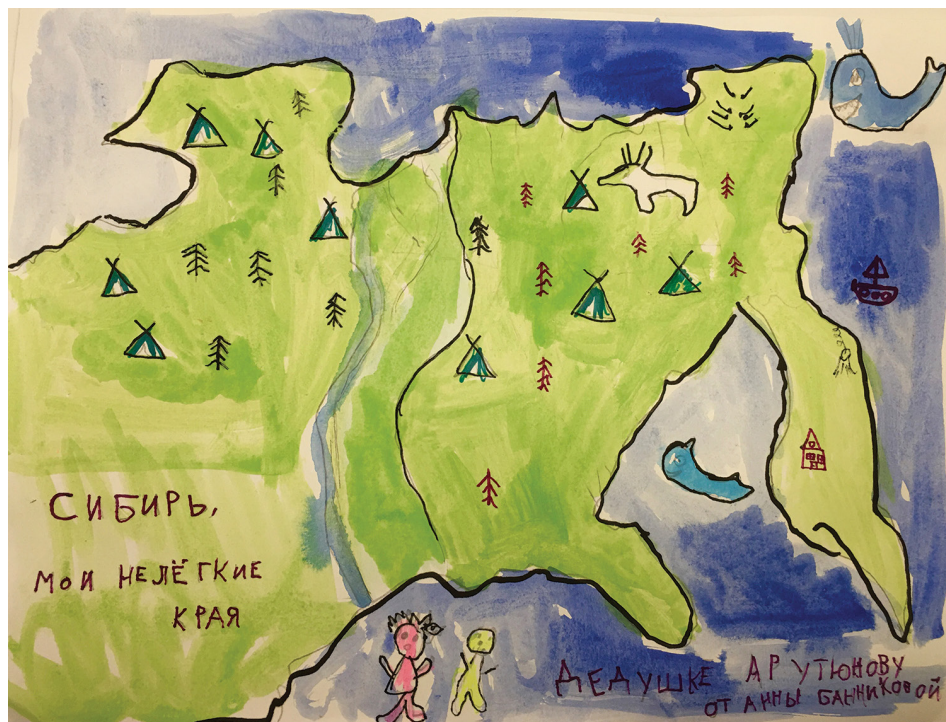 СИБИРЬ,
МОИ НЕЛЁГКИЕ
КРАЯ
ДЕДУШКЕ АРУТЮНОВУ
ОТ АННЫ БАННИКОВОЙ